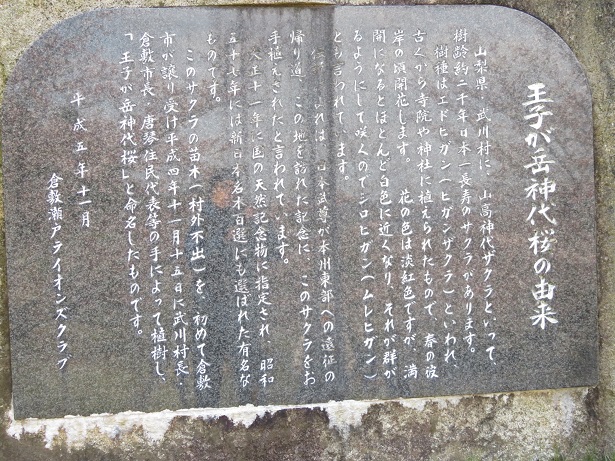 王子が岳神代桜の由来
山梨県・武川村に、山高神代ザクラといって、
樹齢約二千年日本一長寿のサクラがあります。
樹種はエドヒガン（ヒガンザクラ）といわれ、
古くから寺院や神社に植えられたもので、春の彼
岸の頃開花します。花の色は淡紅色ですが、満
開になるとほとんど白色に近くなり、それが群が
るようにして咲くのでシロヒガン（ムレヒガン）
とも言われています。
伝説によれば、日本武尊が本州東部への遠征の
帰り道、この地を訪れた記念に、このサクラをお
手植えされたと言われています。
大正十一年に国の天然記念物に指定され、昭和
五十七年には新日本名木百選にも選ばれた有名な
ものです。
このサクラの苗木（村外不出）を、初めて倉敷
市が譲り受け平成四年十一月十五日に武川村長・
倉敷市長・唐琴住民代表等の手によって植樹し、
「王子が岳神代桜」と命名したものです。
平成五年十一月
倉敷瀬戸ライオンズクラブ